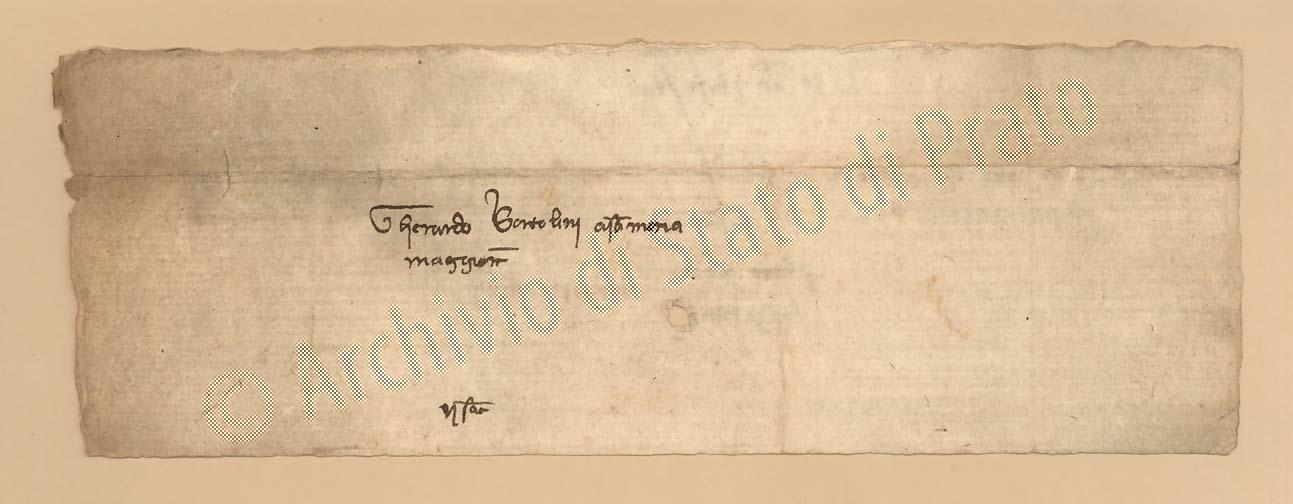 Gherardo Bartolini a s͞c̄a maria
maggiore
© Archivio di Stato di Prato